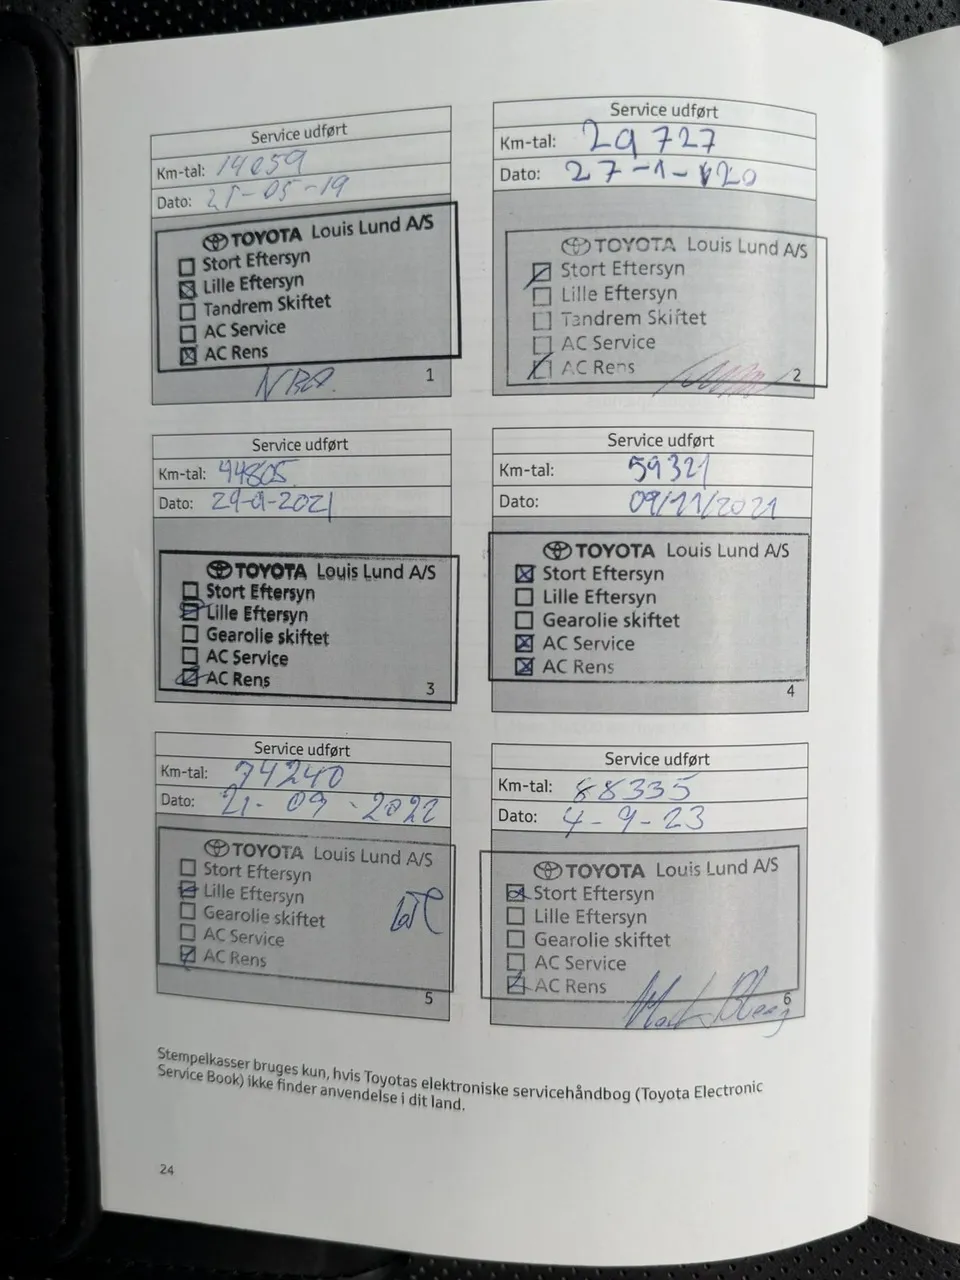 Service udført
Km-tal: 14059
Dato: 21-05-19
TOYOTA Louis Lund A/S
Stort Eftersyn
Lille Eftersyn
Tandrem Skiftet
AC Service
AC Rens
1
Service udført
Km-tal: 29727
Dato: 27-1-20
TOYOTA Louis Lund A/S
Stort Eftersyn
Lille Eftersyn
Tandrem Skiftet
AC Service
AC Rens
2
Service udført
Km-tal: 44805
Dato:
TOYOTA Louis Lund A/S
Stort Eftersyn
Lille Eftersyn
Gearolie skiftet
AC Service
AC Rens
3
Service udført
Km-tal: 59321
Dato: 09/11/2021
TOYOTA Louis Lund A/S
Stort Eftersyn
Lille Eftersyn
Gearolie skiftet
AC Service
AC Rens
4
Service udført
Km-tal: 74240
Dato: 21-09-2022
TOYOTA Louis Lund A/S
Stort Eftersyn
Lille Eftersyn
Gearolie skiftet
AC Service
AC Rens
5
Service udført
Km-tal: 88335
Dato: 4-9-23
TOYOTA Louis Lund A/S
Stort Eftersyn
Lille Eftersyn
Gearolie skiftet
AC Service
AC Rens
6
Stempelkasser bruges kun, hvis Toyotas elektroniske servicehåndbog (Toyota Electronic
Service Book) ikke finder anvendelse i dit land.
24